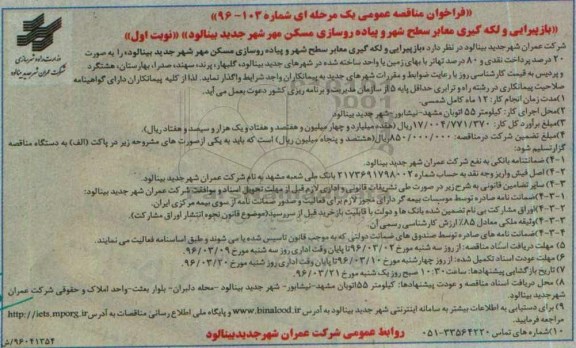 «فراخوان مناقصه عمومی یک مرحله ای شماره ۱۰۳-۹۶»
«بازپیرایی و لکه گیری معابر سطح شهر و پیاده روسازی مسکن مهر شهر جدید بینالود» «نوبت اول»
وزارت راه و شهرسازی
شرکت عمران شهر جدید بینالود
شرکت عمران شهر جدید بینالود در نظر دارد «بازپیرایی و لکه گیری معابر سطح شهر و پیاده روسازی مسکن مهر شهر جدید بینالود» را به صورت
۲۰ درصد پرداخت نقدی و ۸۰ درصد تهاتر با بهای زمین یا واحد ساخته شده در شهرهای جدید بینالود، گلبهار، پرند، سهند، صدرا، بهارستان، هشتگرد
و پردیس به قیمت کارشناسی روز با رعایت ضوابط و مقررات شهرهای جدید به پیمانکاران واجد شرایط واگذار نماید. لذا از کلیه پیمانکاران دارای گواهینامه
صلاحیت پیمانکاری در رشته راه و ترابری حداقل پایه ۵ از سازمان مدیریت و برنامه ریزی کشور دعوت بعمل می آید.
۱) مدت زمان انجام کار: ۱۲ ماه کامل شمسی.
۲) محل اجرای کار: کیلومتر ۵۵ اتوبان مشهد-نیشابور-شهر جدید بینالود
۳) مبلغ برآورد کل کار: ۱۷/۰۰۴/۷۷۱/۳۷۰ ریال (هفده میلیارد و چهار میلیون و هفتصد و هفتاد و یک هزار و سیصد و هفتاد ریال).
۴) مبلغ تضمین شرکت در مناقصه: ۸۵۰/۰۰۰/۰۰۰ ریال (هشتصد و پنجاه میلیون ریال) است که باید به یکی از صورت های مشروحه زیر در پاکت (الف) به دستگاه مناقصه
گزار تسلیم شود:
۴-۱) ضمانتنامه بانکی به نفع شرکت عمران شهر جدید بینالود.
۴-۲) اصل فیش واریز وجه نقد به حساب شماره ۲۱۷۳۶۹۱۷۹۸۰۰۲ بانک ملی شعبه مشهد به نام شرکت عمران شهر جدید بینالود.
۴-۳) سایر تضامین قانونی به شرح زیر در صورت طی تشریفات قانونی و اداری لازم قبل از مهلت تحویل اسناد و موافقت شرکت عمران شهر جدید بینالود:
۴-۳-۱) ضمانت نامه صادره توسط موسسات بیمه گر دارای مجوز لازم برای فعالیت و صدور ضمانت نامه از سوی بیمه مرکزی ایران.
۴-۳-۲) اوراق مشارکت بی نام تضمین شده بانک ها و دولت با قابلیت بازخرید قبل از سررسید (موضوع قانون نحوه انتشار اوراق مشارکت).
۴-۳-۳) وثیقه ملکی معادل ۸۵٪ ارزش کارشناسی رسمی آن.
۴-۳-۴) ضمانت نامه های صادره توسط صندوق های ضمانت دولتی که به موجب قانون تاسیس شده یا می شوند و طبق اساسنامه فعالیت می نمایند.
۵) مهلت دریافت اسناد مناقصه: از روز سه شنبه مورخ ۹۶/۰۳/۰۲ تا پایان وقت اداری روز سه شنبه مورخ ۹۶/۰۳/۰۹.
۶) مهلت عودت اسناد تکمیل شده: از روز چهارشنبه مورخ ۹۶/۰۳/۱۰ تا پایان وقت اداری روز شنبه مورخ ۹۶/۰۳/۲۰.
۷) تاریخ بازگشایی پیشنهادها: ساعت ۱۰:۳۰ صبح روز یک شنبه مورخ ۹۶/۰۳/۲۱
۸) محل دریافت اسناد مناقصه و عودت پیشنهادها: کیلومتر ۵۵ اتوبان مشهد-نیشابور- شهر جدید بینالود -محله دلبران- بلوار بعثت-واحد املاک و حقوقی شرکت عمران
شهر جدید بینالود.
۹) برای دستیابی به اطلاعات بیشتر به سامانه اینترنتی شهر جدید بینالود به آدرس www.binalood.ir و پایگاه ملی اطلاع رسانی مناقصات به آدرس http://iets.mporg.ir
مراجعه فرمایید.
۱۰) شماره های تماس ۳۳۵۶۴۲۲۰-۰۵۱
روابط عمومی شرکت عمران شهر جدید بینالود
۹۶۰۴۱۲۵۴/ش